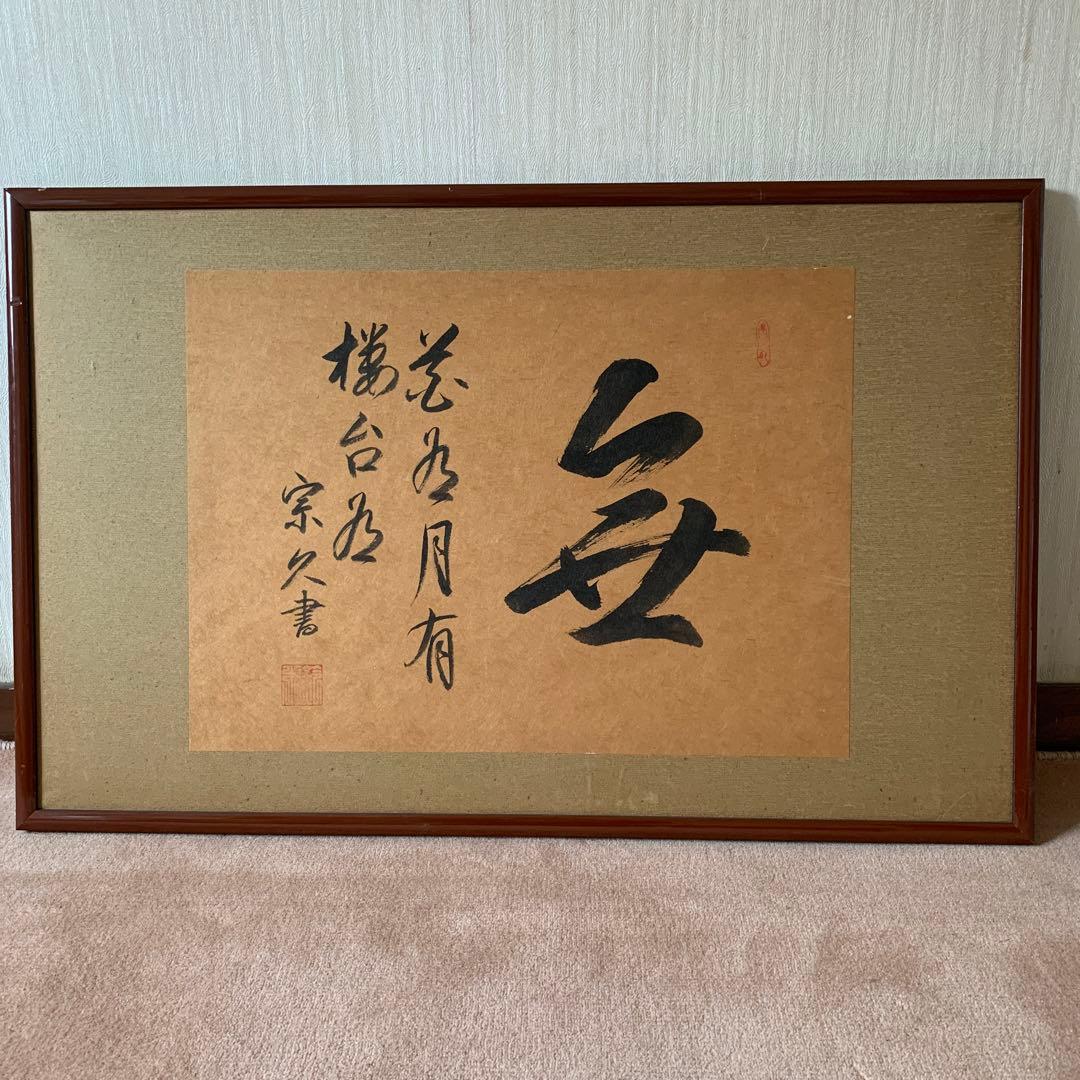 無
花有月有
楼台有
宗久書